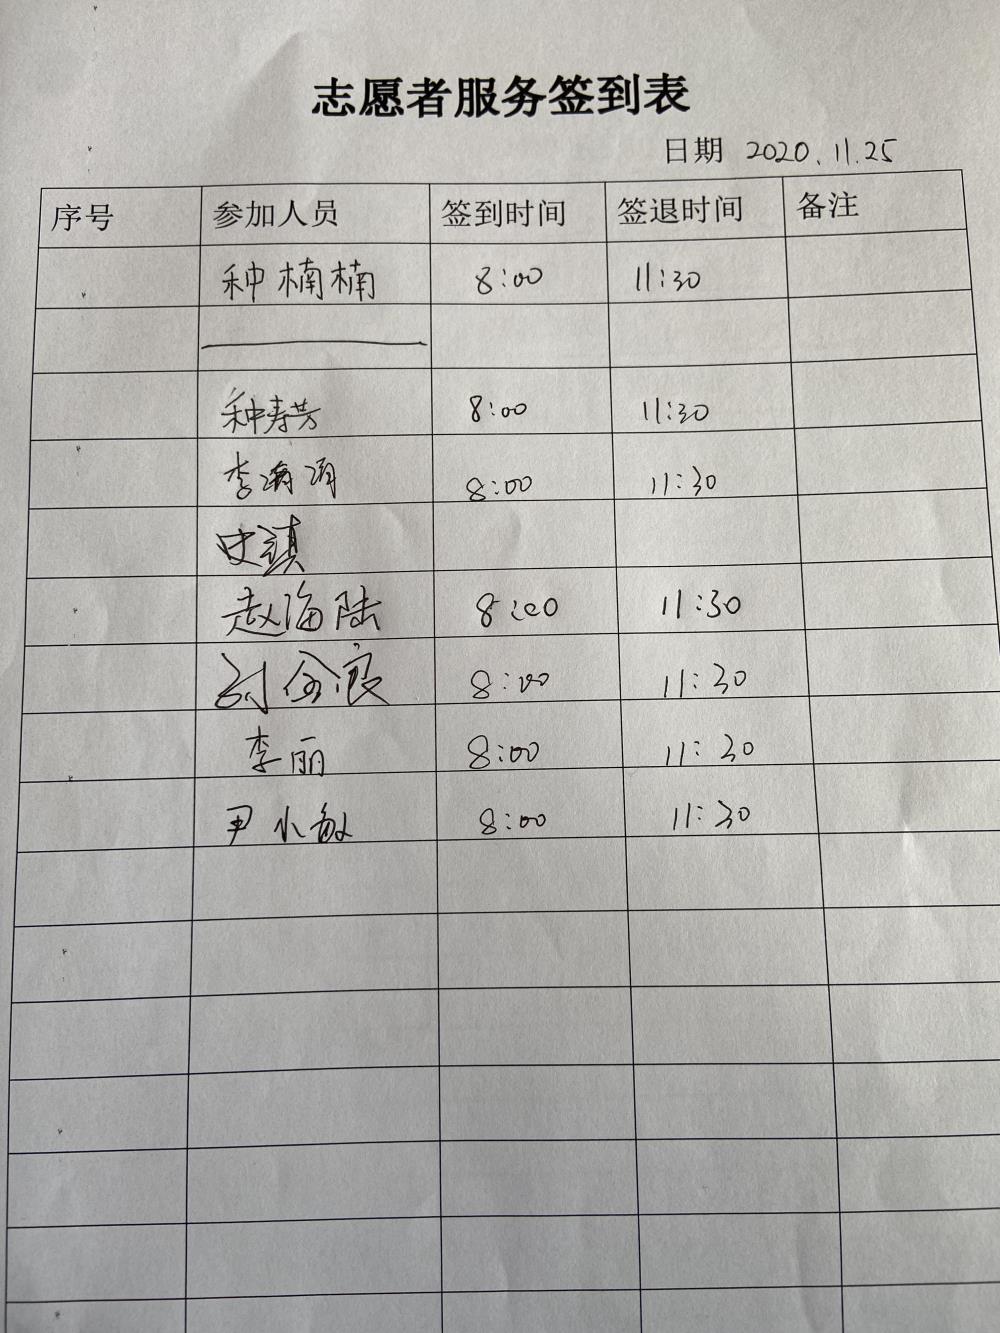 志愿者服务签到表
日期 2020.11.25
序号 参加人员 签到时间 签退时间 备注
种楠楠 8:00 11:30
种寿芳 8:00 11:30
李 8:00 11:30
史
赵海陆 8:00 11:30
刘金良 8:00 11:30
李丽 8:00 11:30
尹小敏 8:00 11:30